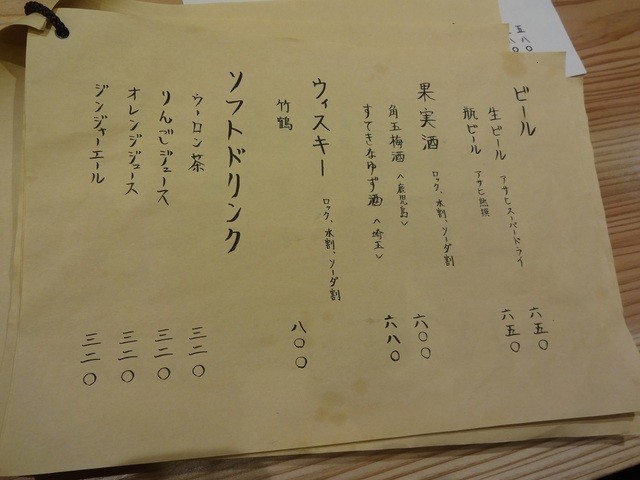 ビール
生ビール アサヒスーパードライ 六五〇
瓶ビール アサヒ熟撰 六五〇
果実酒 ロック、水割、ソーダ割
角玉梅酒〈鹿児島〉 六〇〇
すてきなゆず酒〈埼玉〉 六八〇
ウィスキー ロック、水割、ソーダ割
竹鶴 八〇〇
ソフトドリンク
ウーロン茶 三二〇
りんごジュース 三二〇
オレンジジュース 三二〇
ジンジャーエール 三二〇
五八〇